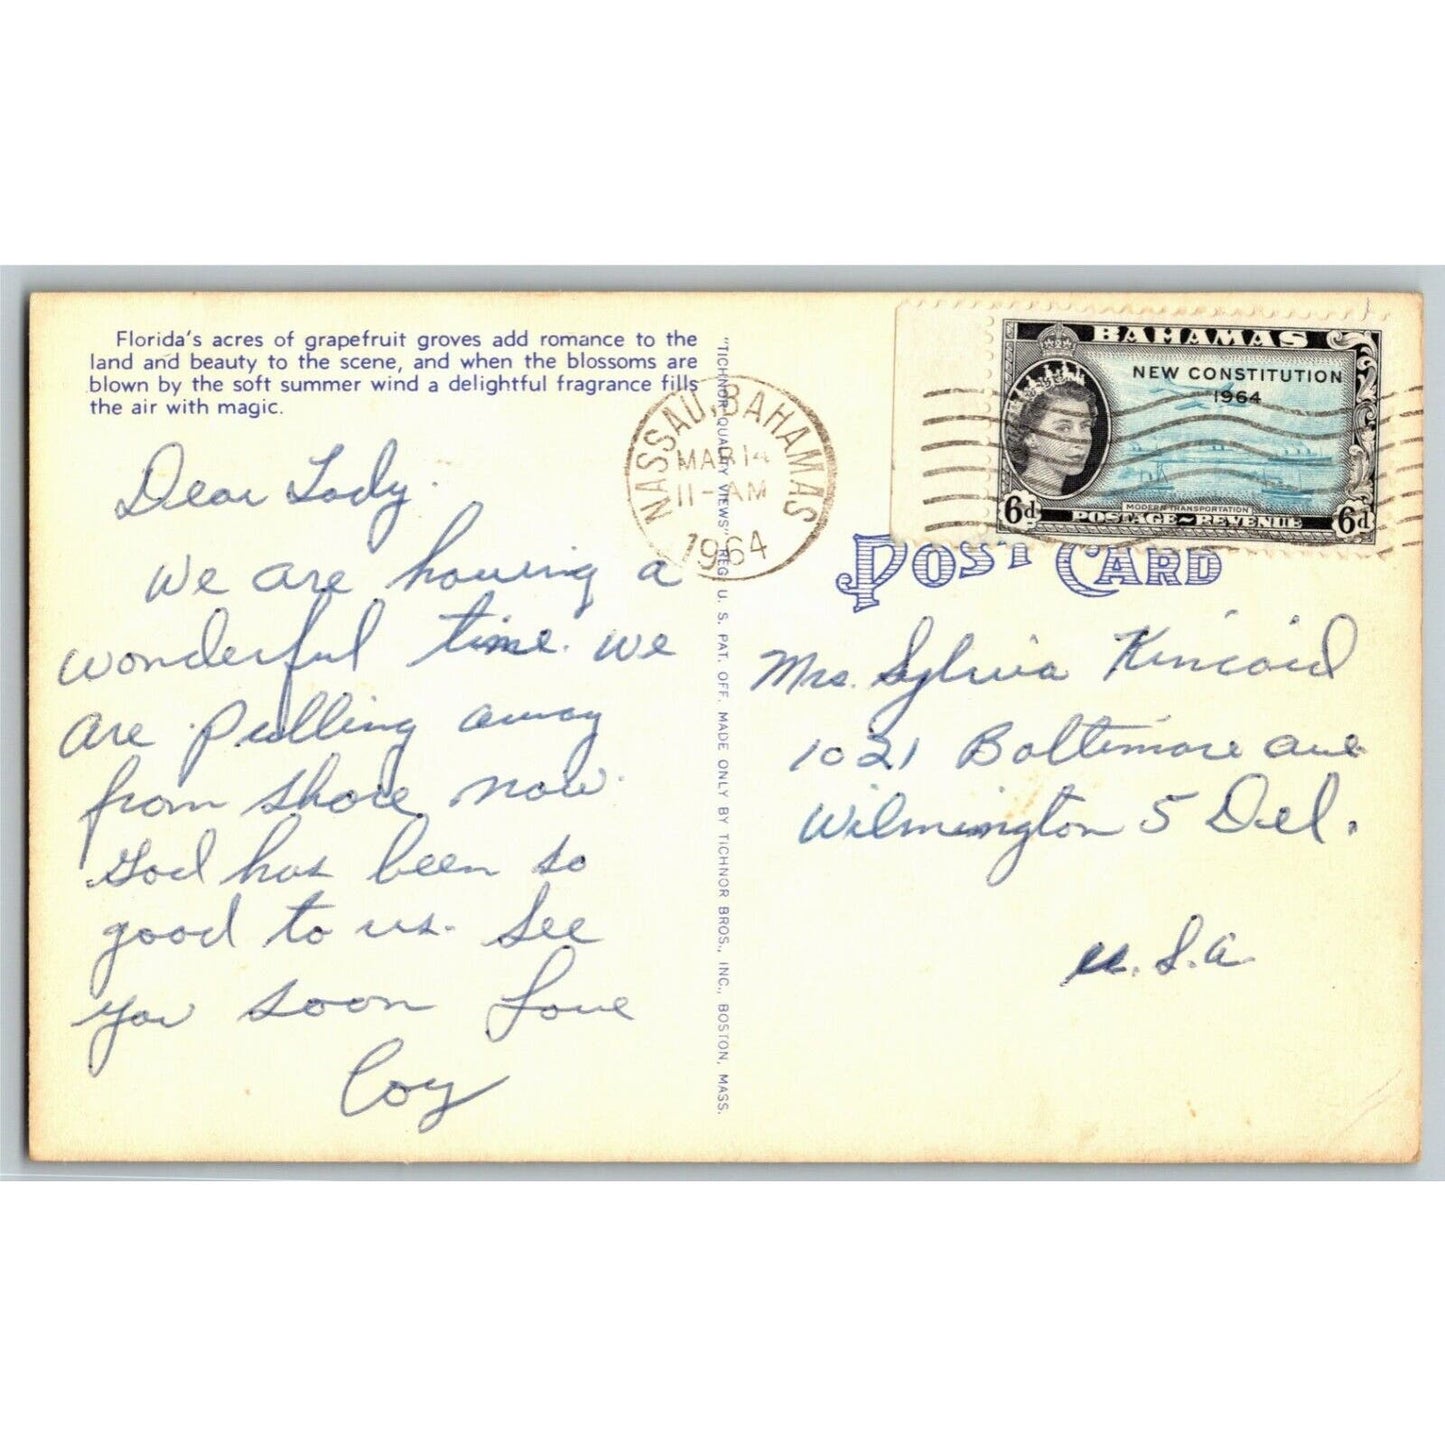 Florida's acres of grapefruit groves add romance to the
land and beauty to the scene, and when the blossoms are
blown by the soft summer wind a delightful fragrance fills
the air with magic.
Dear Lady.
We are having a
wonderful time. We
are pulling away
from shore now.
God has been so
good to us. See
you soon Love
Coy
"TICHNOR QUALITY VIEWS" REG. U. S. PAT. OFF. MADE ONLY BY TICHNOR BROS., INC., BOSTON, MASS.
NASSAU, BAHAMAS
MAR 14
11-AM
1964
BAHAMAS
NEW CONSTITUTION
1964
MODERN TRANSPORTATION
6d POSTAGE~REVENUE 6d
POST CARD
Mrs. Sylvia Kincaid
1021 Baltimore ave
Wilmington 5 Del.
U.S.A.